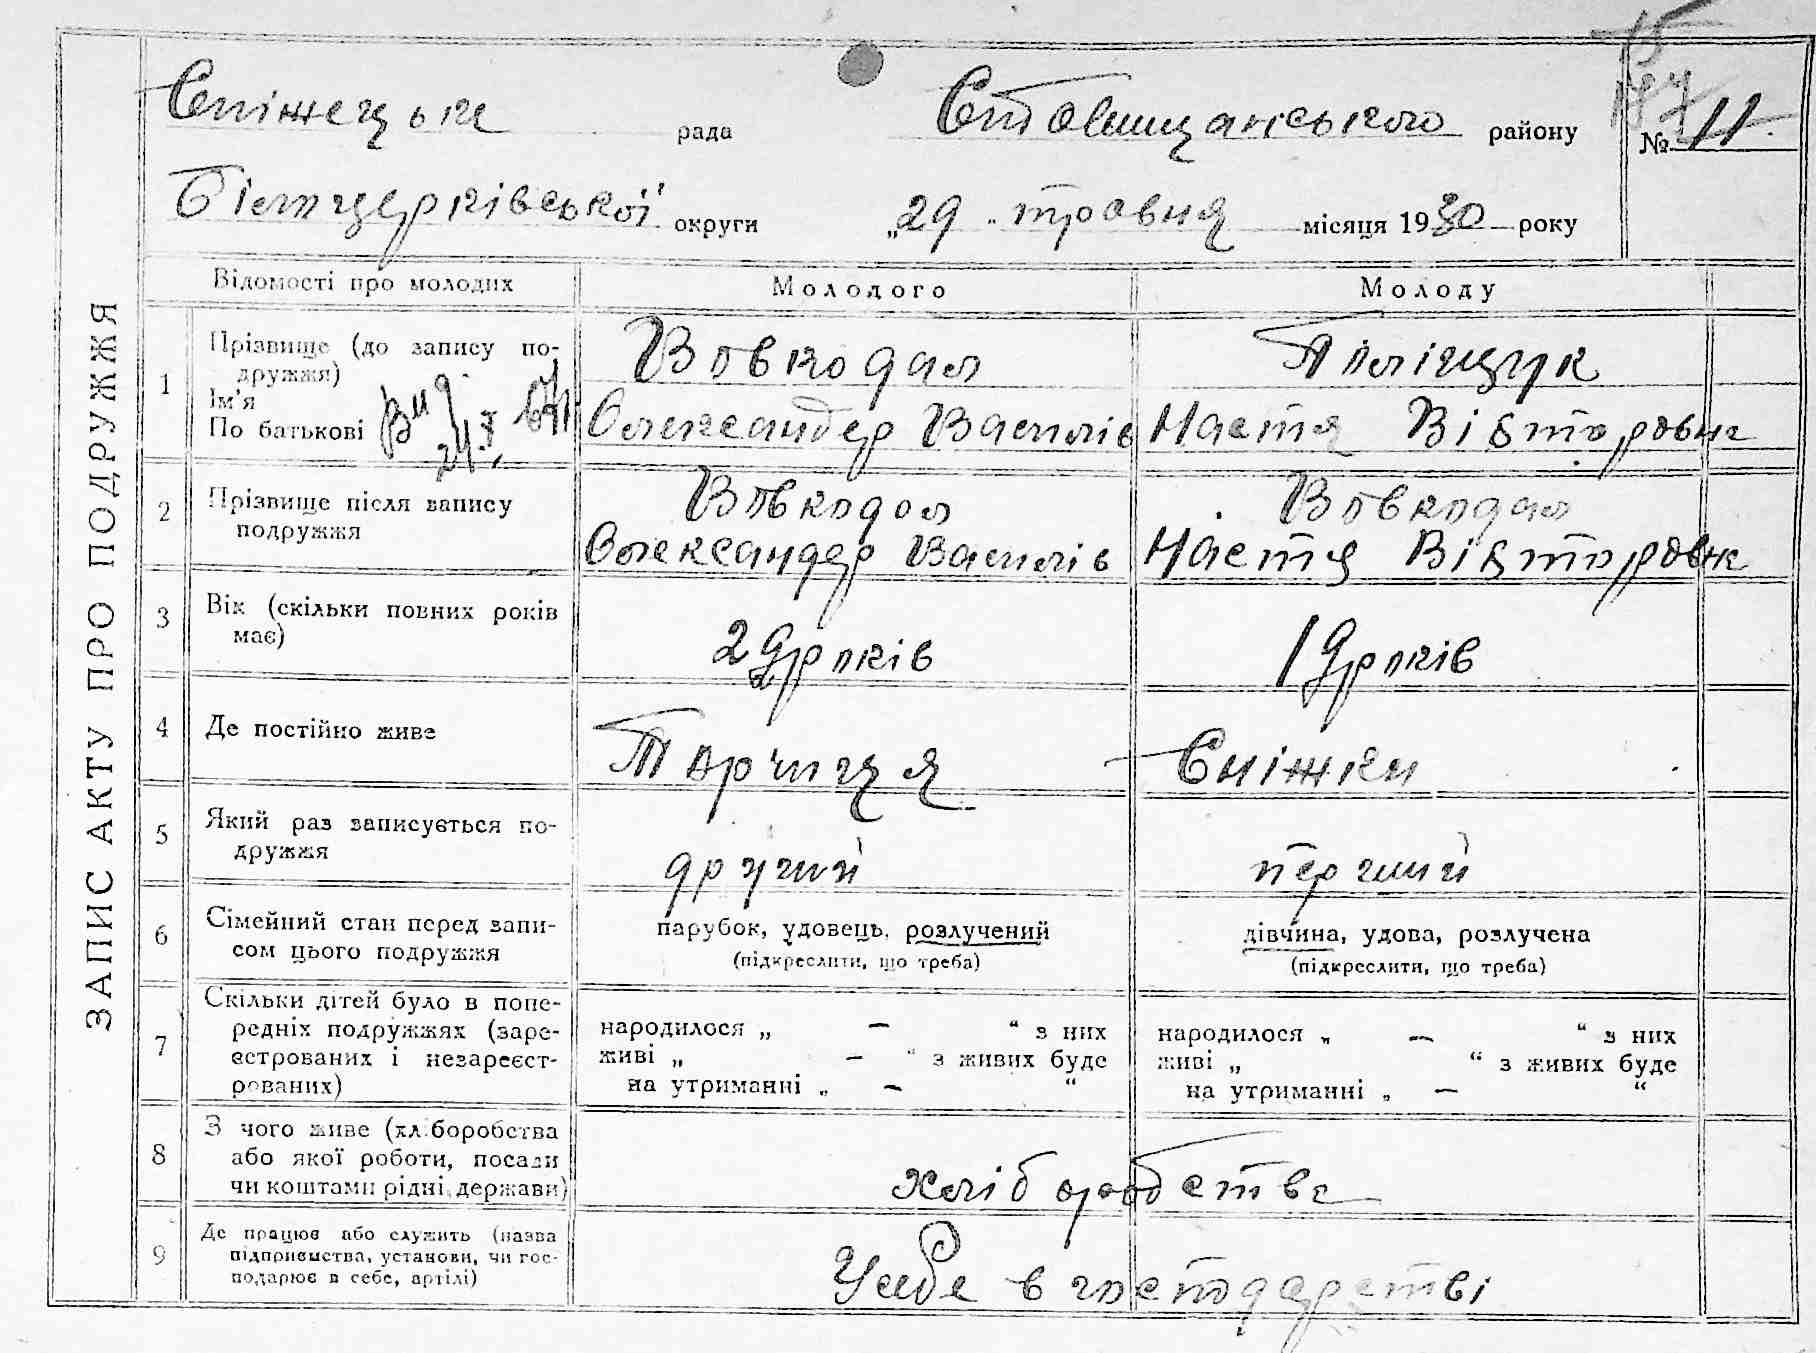 ЗАПИС АКТУ ПРО ПОДРУЖЖЯ
Сніжецька рада Ставищанського району № 11
Білоцерківської округи „29" травня місяця 1930 року
Відомості про молодих Молодого Молоду
1 Прізвище (до запису по-
дружжя) Вовкодал Поліщук
Ім'я
По батькові Олександер Василів Настя Вікторовна
2 Прізвище після запису Вовкодал Вовкодал
подружжя Олександер Василів Настя Вікторовна
3 Вік (скільки повних років
має) років 19 років
4 Де постійно живе Торчиця Сніжки
5 Який раз записується по-
дружжя другий перший
6 Сімейний стан перед запи- парубок, удовець, розлучений дівчина, удова, розлучена
сом цього подружжя (підкреслити, що треба) (підкреслити, що треба)
7 Скільки дітей було в попе-
редніх подружжях (заре- народилося „ — “ з них народилося „ — “ з них
єстрованих і незареєст- живі „ — “ з живих буде живі „ “ з живих буде
рованих) на утриманні „ — “ на утриманні „ — “
8 З чого живе (хліборобства
або якої роботи, посади
чи коштами рідні, держави) хліборобства
9 Де працює або служить (назва
підприємства, установи, чи гос-
подарює в себе, артілі) У себе в господарстві